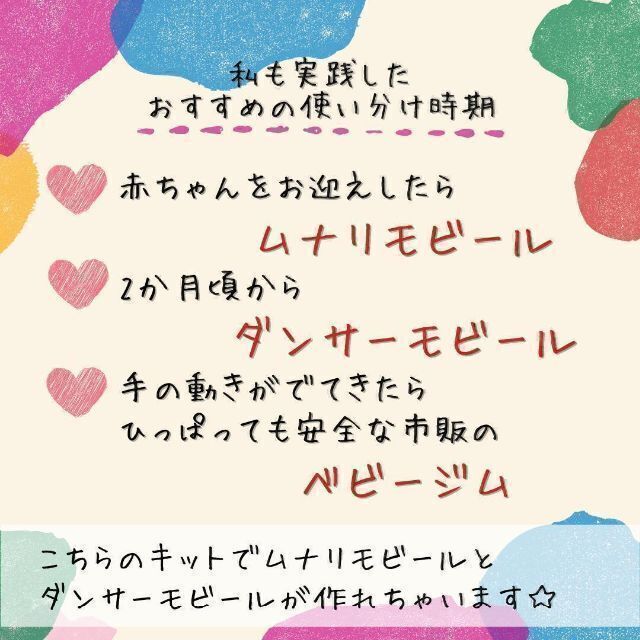 私も実践した
おすすめの使い分け時期
赤ちゃんをお迎えしたら
ムナリモビール
2か月頃から
ダンサーモビール
手の動きがでてきたら
ひっぱっても安全な市販の
ベビージム
こちらのキットでムナリモビールと
ダンサーモビールが作れちゃいます☆